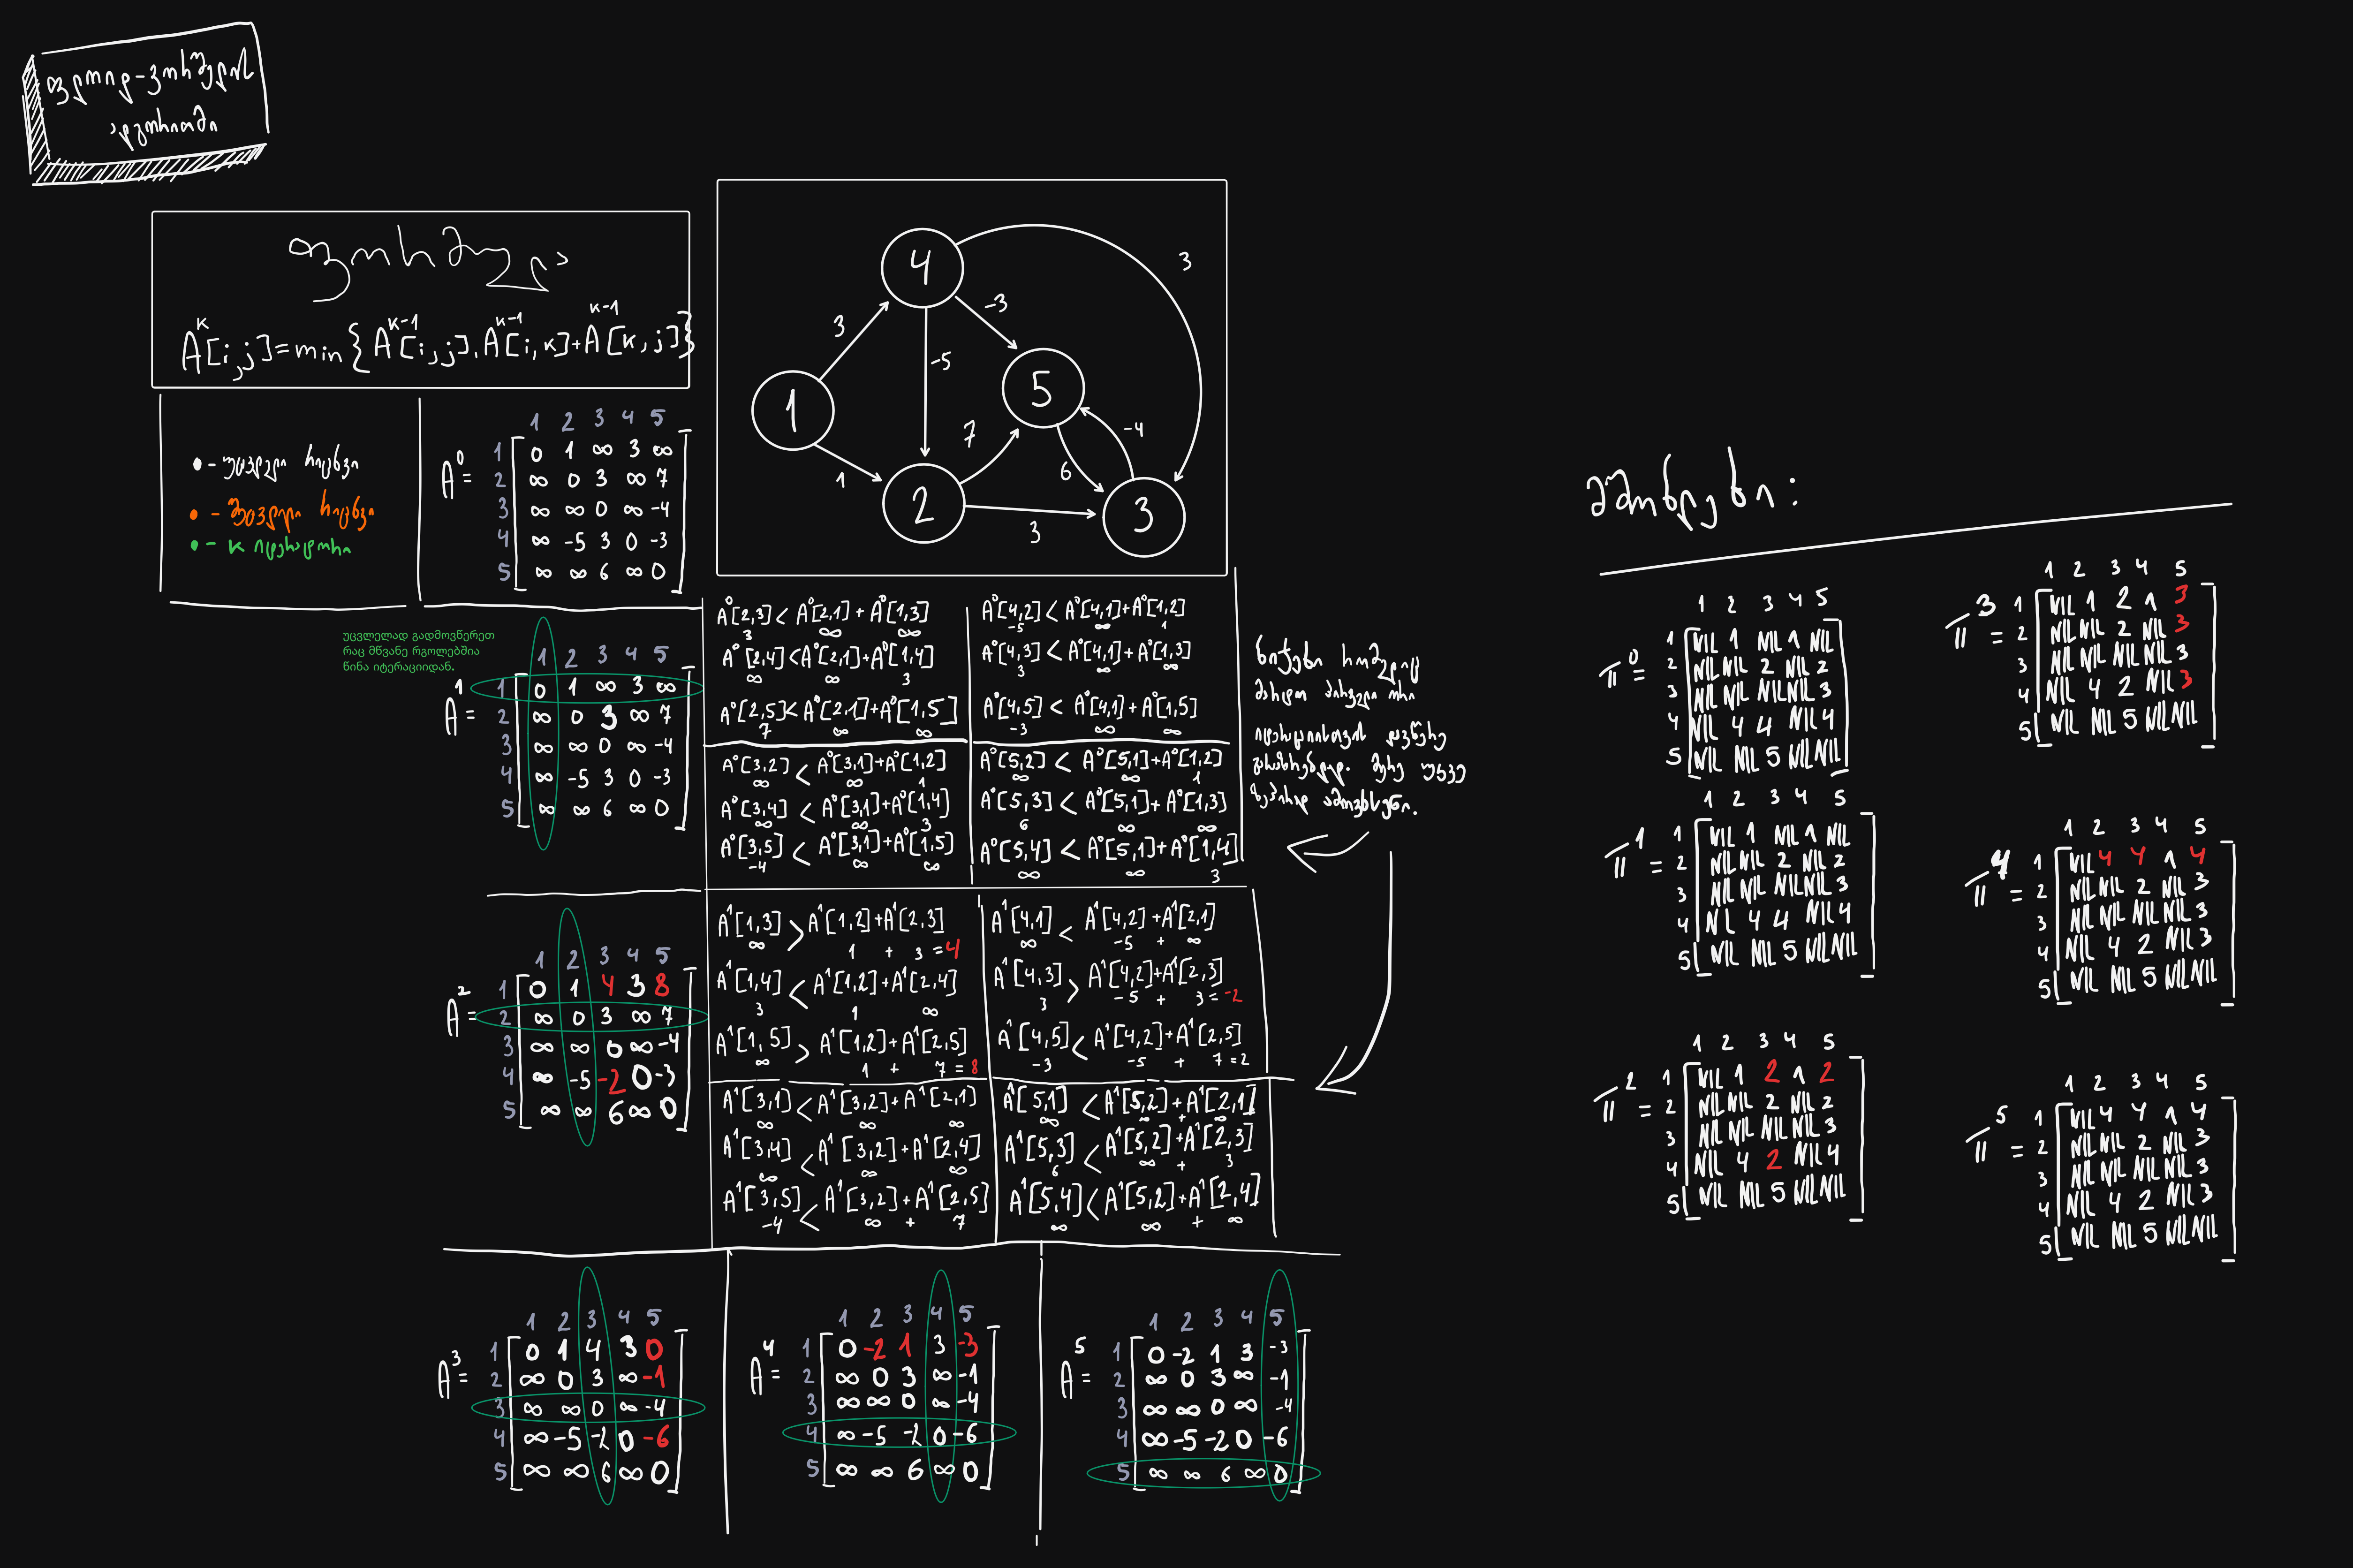 ფლოიდ-ვორშელის
ალგორითმი
ფორმულა
A^k[i,j]=min{A^k-1[i,j],A^k-1[i,k]+A^k-1[k,j]}
• - უცვლელი რიცხვი
• - შეცვლილი რიცხვი
• - K იტერატორი
1 2 3 4 5
A^0 =
1 0 1 ∞ 3 ∞
2 ∞ 0 3 ∞ 7
3 ∞ ∞ 0 ∞ -4
4 ∞ -5 3 0 -3
5 ∞ ∞ 6 ∞ 0
4
3
3
-3
-5
1
5
7
-4
6
1
2
3
3
უცვლელად გადმოვწერეთ
რაც მწვანე რგოლებშია
წინა იტერაციიდან.
1 2 3 4 5
A^1 =
1 0 1 ∞ 3 ∞
2 ∞ 0 3 ∞ 7
3 ∞ ∞ 0 ∞ -4
4 ∞ -5 3 0 -3
5 ∞ ∞ 6 ∞ 0
A^0[2,3] < A^0[2,1] + A^0[1,3]
3 ∞ ∞
A^0[2,4] < A^0[2,1] + A^0[1,4]
∞ ∞ 3
A^0[2,5] < A^0[2,1] + A^0[1,5]
7 ∞ ∞
A^0[4,2] < A^0[4,1] + A^0[1,2]
-5 ∞ 1
A^0[4,3] < A^0[4,1] + A^0[1,3]
3 ∞ ∞
A^0[4,5] < A^0[4,1] + A^0[1,5]
-3 ∞ ∞
A^0[3,2] < A^0[3,1] + A^0[1,2]
∞ ∞ 1
A^0[3,4] < A^0[3,1] + A^0[1,4]
∞ ∞ 3
A^0[3,5] < A^0[3,1] + A^0[1,5]
-4 ∞ ∞
A^0[5,2] < A^0[5,1] + A^0[1,2]
∞ ∞ 1
A^0[5,3] < A^0[5,1] + A^0[1,3]
6 ∞ ∞
A^0[5,4] < A^0[5,1] + A^0[1,4]
∞ ∞ 3
მარტო პირველი ორი
იტერაციისთვის დავწერე
მერე უკვე
ზეპირად
1 2 3 4 5
A^2 =
1 0 1 4 3 8
2 ∞ 0 3 ∞ 7
3 ∞ ∞ 0 ∞ -4
4 ∞ -5 -2 0 -3
5 ∞ ∞ 6 ∞ 0
A^1[1,3] > A^1[1,2] + A^1[2,3]
∞ 1 + 3 = 4
A^1[1,4] < A^1[1,2] + A^1[2,4]
3 1 ∞
A^1[1,5] > A^1[1,2] + A^1[2,5]
∞ 1 + 7 = 8
A^1[4,1] < A^1[4,2] + A^1[2,1]
∞ -5 + ∞
A^1[4,3] > A^1[4,2] + A^1[2,3]
3 -5 + 3 = -2
A^1[4,5] < A^1[4,2] + A^1[2,5]
-3 -5 + 7 = 2
A^1[3,1] < A^1[3,2] + A^1[2,1]
∞ ∞ ∞
A^1[3,4] < A^1[3,2] + A^1[2,4]
∞ ∞ ∞
A^1[3,5] < A^1[3,2] + A^1[2,5]
-4 ∞ + 7
A^1[5,1] < A^1[5,2] + A^1[2,1]
∞ ∞ + ∞
A^1[5,3] < A^1[5,2] + A^1[2,3]
6 ∞ + 3
A^1[5,4] < A^1[5,2] + A^1[2,4]
∞ ∞ + ∞
1 2 3 4 5
A^3 =
1 0 1 4 3 0
2 ∞ 0 3 ∞ -1
3 ∞ ∞ 0 ∞ -4
4 ∞ -5 -2 0 -6
5 ∞ ∞ 6 ∞ 0
1 2 3 4 5
A^4 =
1 0 -2 1 3 -3
2 ∞ 0 3 ∞ -1
3 ∞ ∞ 0 ∞ -4
4 ∞ -5 -2 0 -6
5 ∞ ∞ 6 ∞ 0
1 2 3 4 5
A^5 =
1 0 -2 1 3 -3
2 ∞ 0 3 ∞ -1
3 ∞ ∞ 0 ∞ -4
4 ∞ -5 -2 0 -6
5 ∞ ∞ 6 ∞ 0
მშობლები:
1 2 3 4 5
π^0 =
1 NIL 1 NIL 1 NIL
2 NIL NIL 2 NIL 2
3 NIL NIL NIL NIL 3
4 NIL 4 4 NIL 4
5 NIL NIL 5 NIL NIL
1 2 3 4 5
π^1 =
1 NIL 1 NIL 1 NIL
2 NIL NIL 2 NIL 2
3 NIL NIL NIL NIL 3
4 NIL 4 4 NIL 4
5 NIL NIL 5 NIL NIL
1 2 3 4 5
π^2 =
1 NIL 1 2 1 2
2 NIL NIL 2 NIL 2
3 NIL NIL NIL NIL 3
4 NIL 4 2 NIL 4
5 NIL NIL 5 NIL NIL
1 2 3 4 5
π^3 =
1 NIL 1 2 1 3
2 NIL NIL 2 NIL 3
3 NIL NIL NIL NIL 3
4 NIL 4 2 NIL 3
5 NIL NIL 5 NIL NIL
1 2 3 4 5
π^4 =
1 NIL 4 4 1 4
2 NIL NIL 2 NIL 3
3 NIL NIL NIL NIL 3
4 NIL 4 2 NIL 3
5 NIL NIL 5 NIL NIL
1 2 3 4 5
π^5 =
1 NIL 4 4 1 4
2 NIL NIL 2 NIL 3
3 NIL NIL NIL NIL 3
4 NIL 4 2 NIL 3
5 NIL NIL 5 NIL NIL